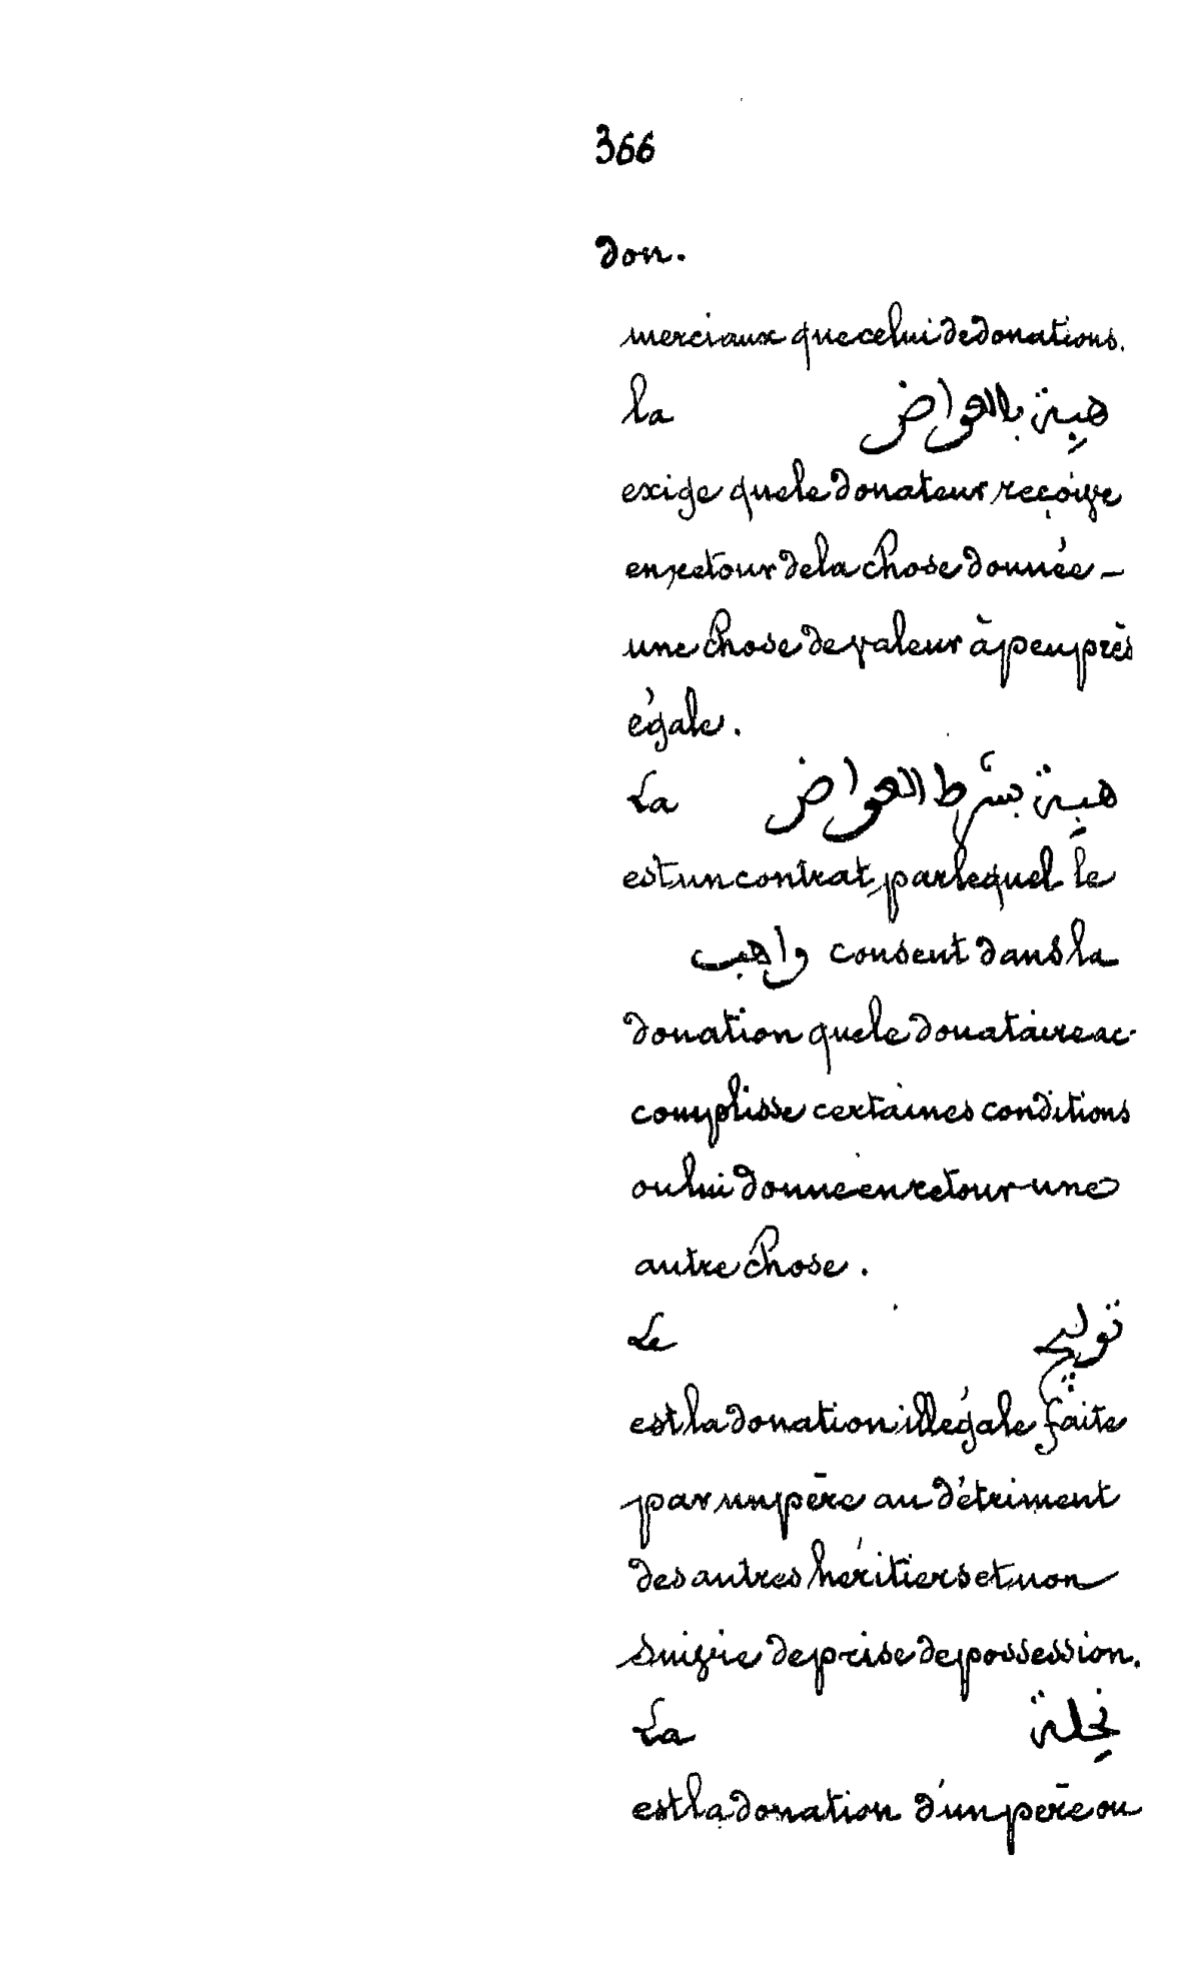 366
don.
merciaux que celui de donations.
la هبِة بالعواض
exige que le donateur reçoive
en retour de la chose donnée —
une chose de valeur à peu près
égale.
La هبِة بشرط العواض
est un contrat par lequel le
واهب consent dans la
donation que le donataire ac-
complisse certaines conditions
ou lui donne en retour une
autre chose.
Le توليج
est la donation illégale faite
par un père au détriment
des autres héritiers et non
suivie de prise de possession.
La نحِلة
est la donation d'un père ou